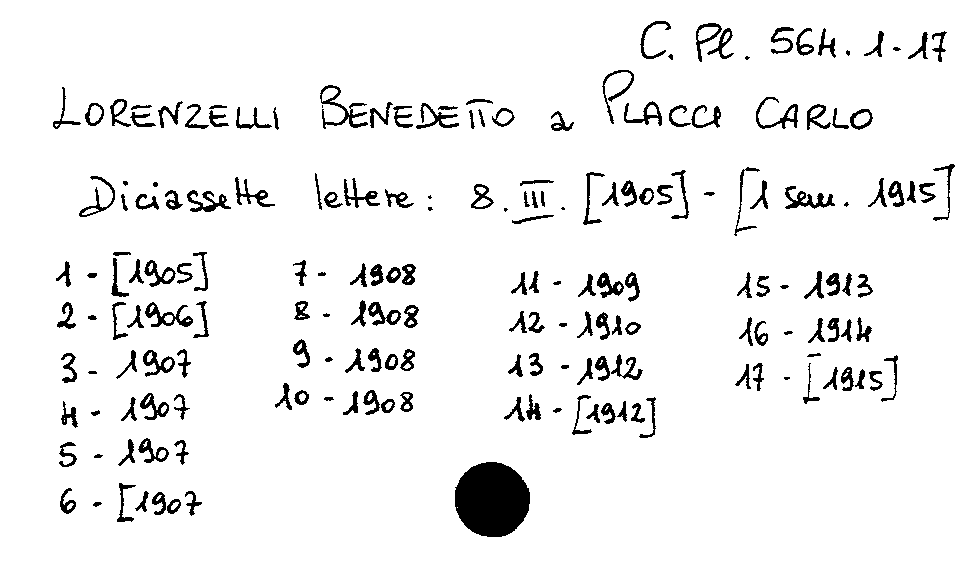 C. Pl. 564. 1-17
LORENZELLI BENEDETTO a PLACCI CARLO
Diciassette lettere: 8. III. [1905] - [1 sem. 1915]
1 - [1905]
2 - [1906]
3 - 1907
4 - 1907
5 - 1907
6 - [1907
7 - 1908
8 - 1908
9 - 1908
10 - 1908
11 - 1909
12 - 1910
13 - 1912
14 - [1912]
15 - 1913
16 - 1914
17 - [1915]